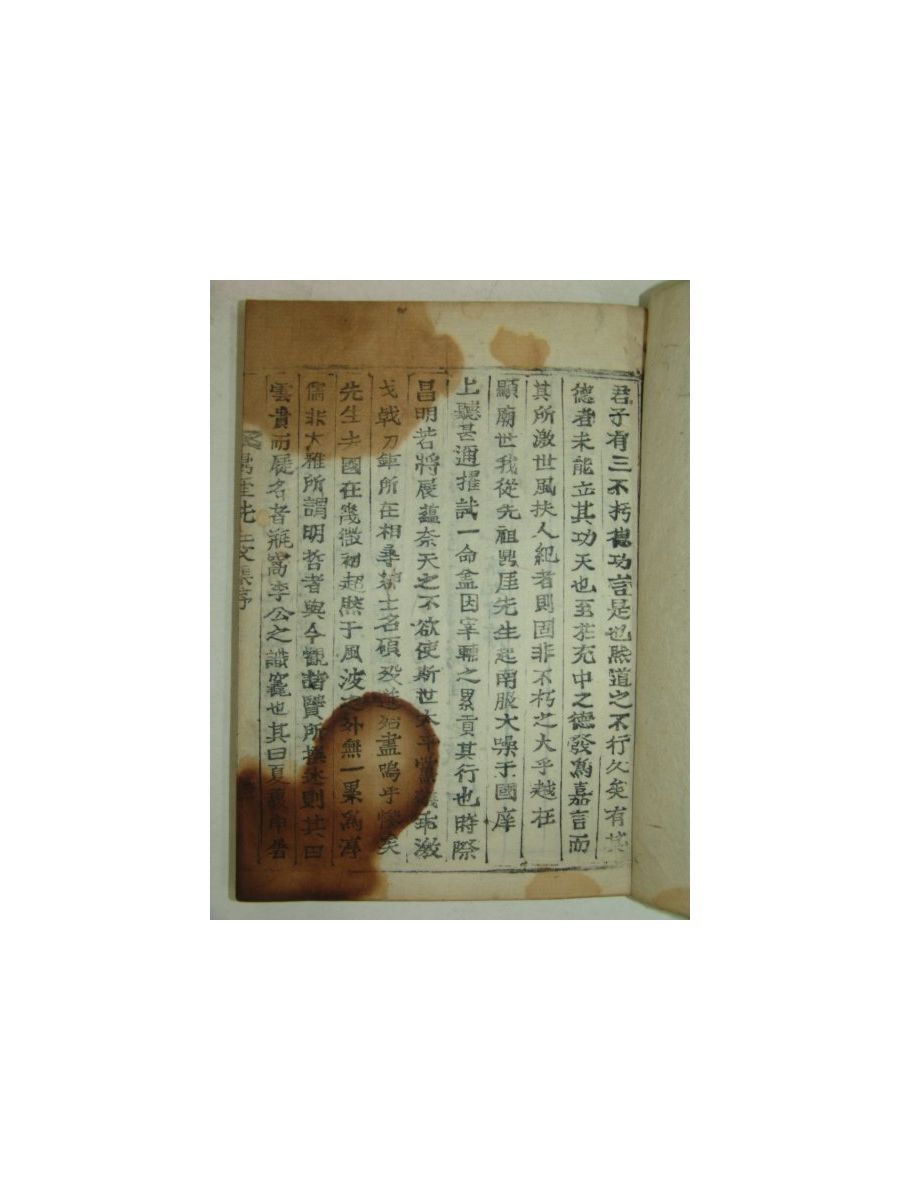 君子有三不朽德功言是也然道之不行久矣有其
德者未能立其功天也至於充中之德發爲嘉言而
其所激世風扶人紀者則固非不朽之大乎越在
顯廟世我從先祖 厓先生起南服大噪于國庠
上聽甚適擢試一命盒因宰輔之累貢其行也時際
昌明若將展蘊奈天之不欲使斯世太平黨 激
戈戟刀鉅所在相尋 士名碩 殆盡嗚乎慘矣
先生去國在幾微 超然于風波之外無一累爲淳
儒非大雅所謂明哲者與今觀諸賢所撰述則其曰
雲貴而屣名者甁窩李公之識竁也其曰夏
厓先 文集序